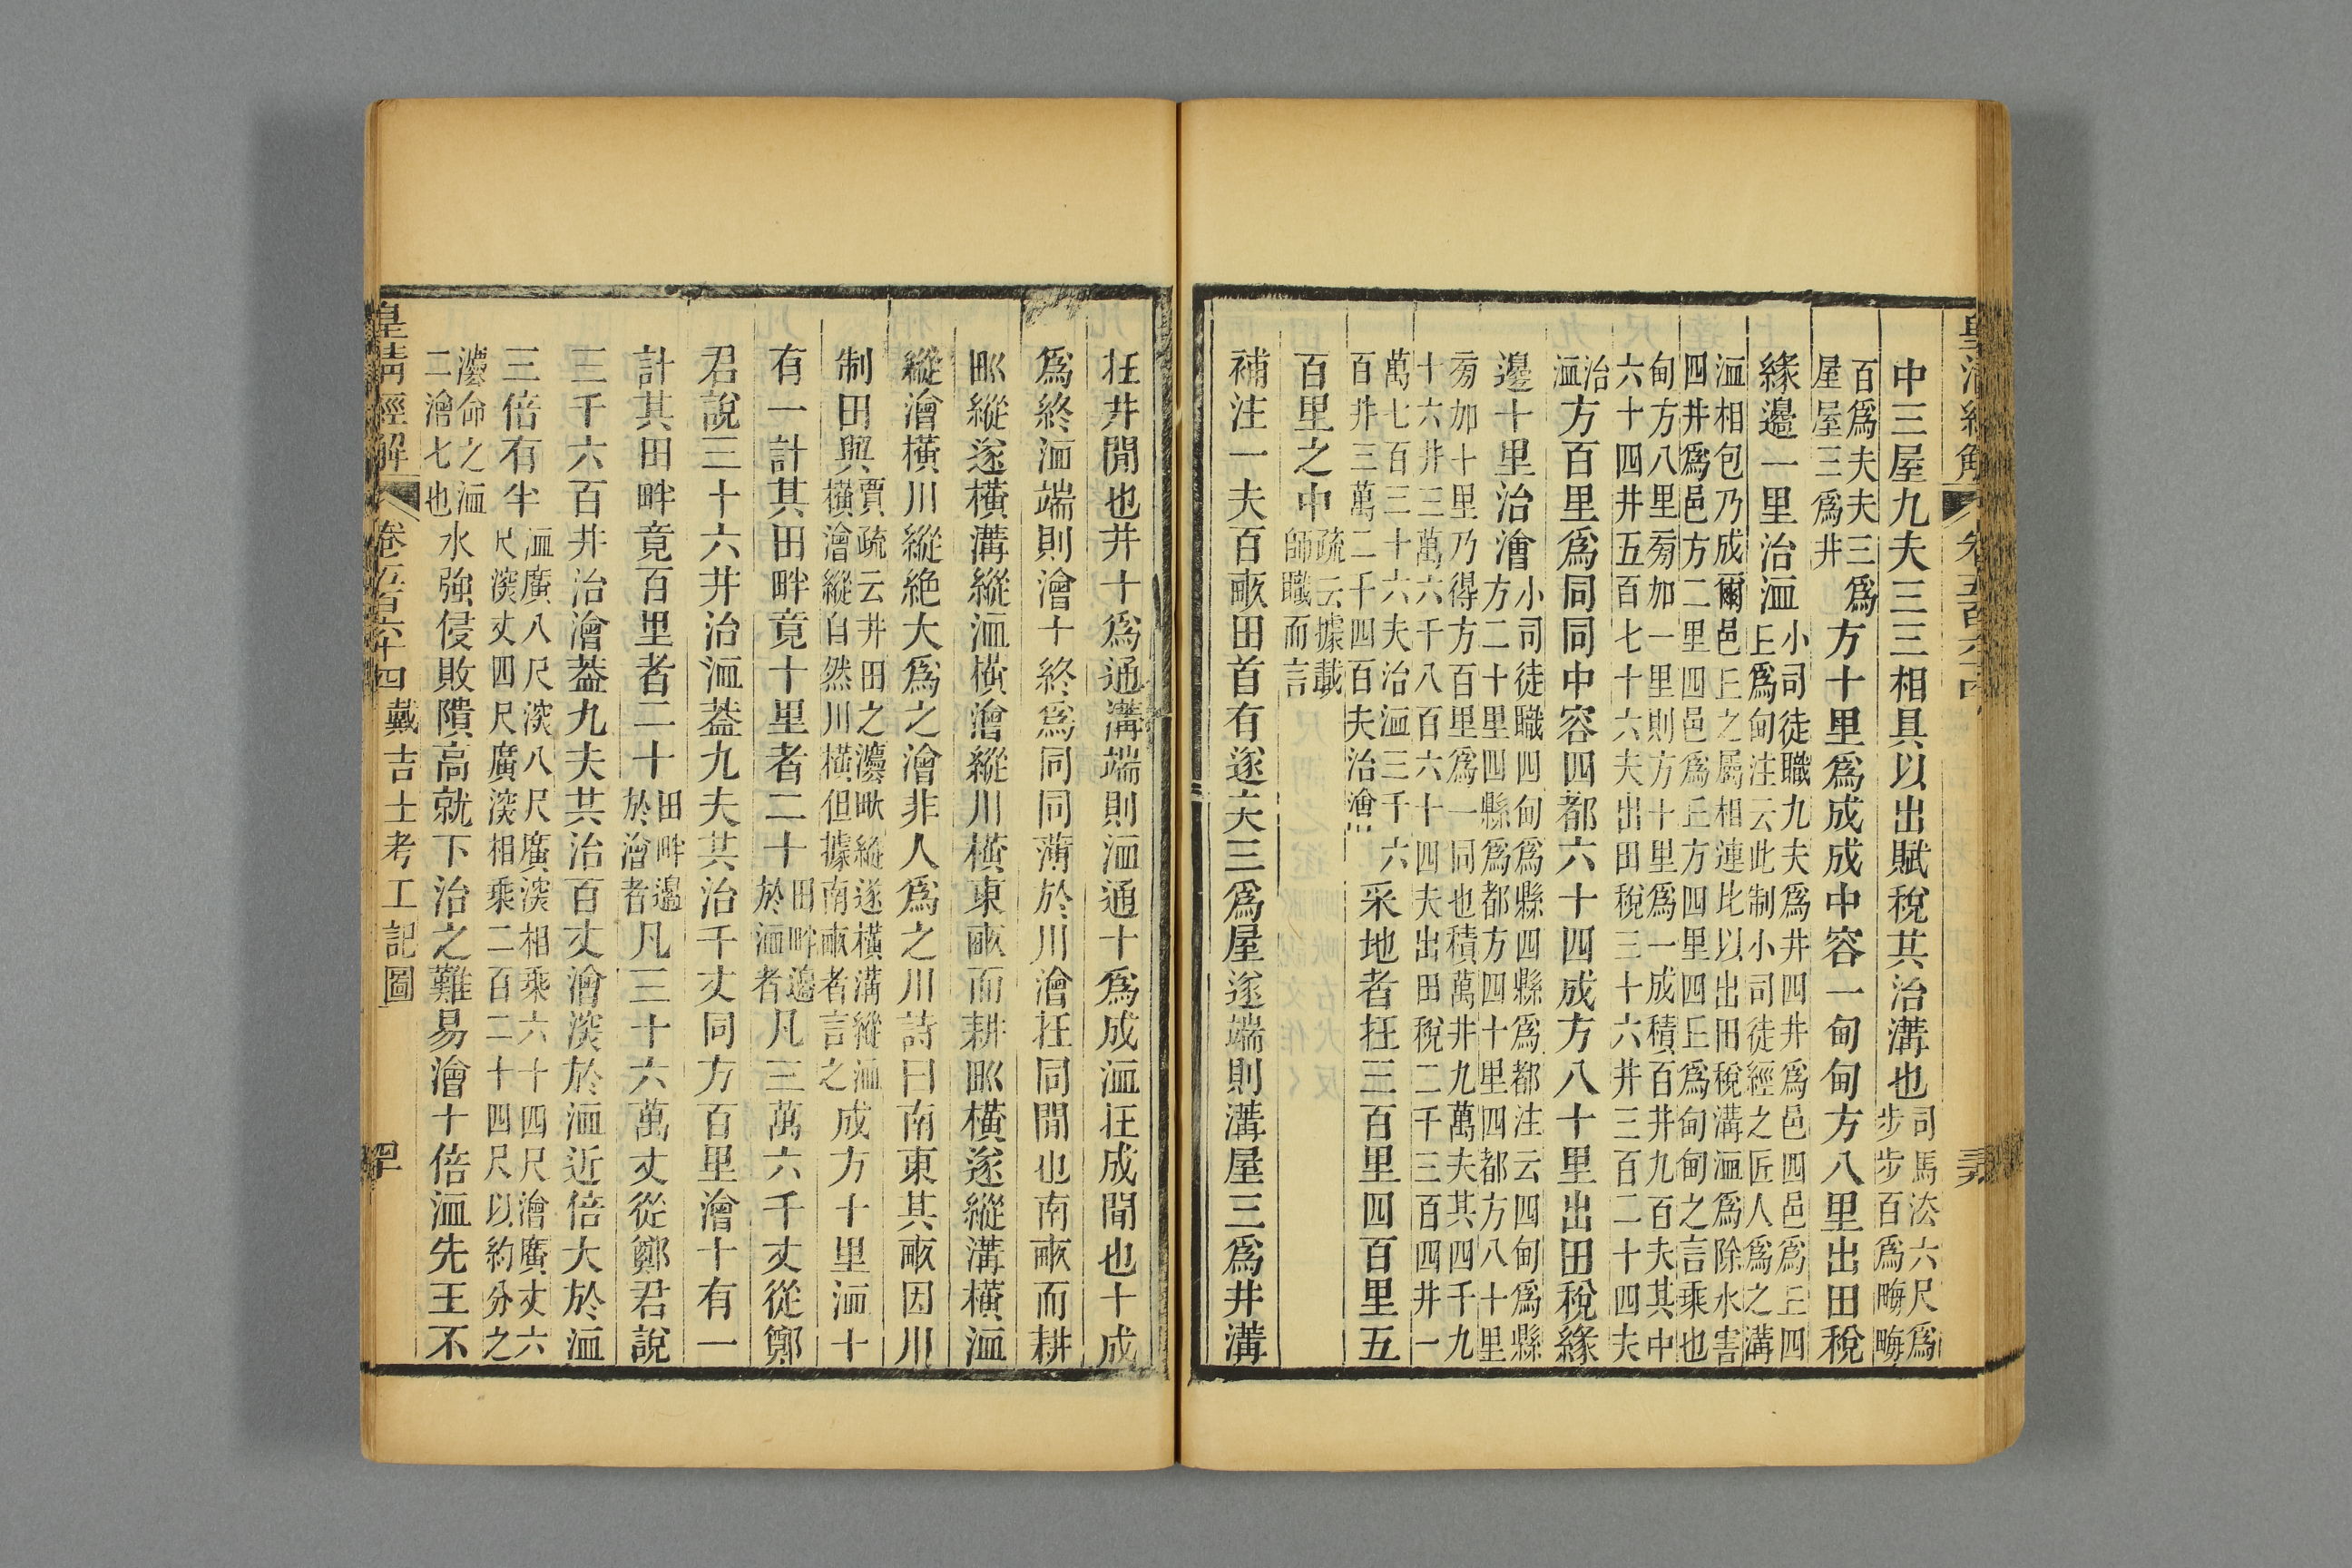 中三屋九夫三三相具以出賦稅共治溝也司馬法六尺爲步步百爲畮畮
百爲夫夫三爲屋屋三爲井方十里爲成成中容一甸甸方八里出田稅
緣邊一里治洫小司徒職九夫爲井四井爲邑四邑爲丘四丘爲甸注云此制小司徒經之匠人爲之溝
洫相包乃成爾邑丘之屬相連比以出田稅溝洫爲除水害四井爲邑方二里四邑爲丘方四里四丘爲甸甸之言乘也
甸方八里㫄加一里則方十里爲一成積百井九百夫其中六十四井五百七十六夫出田稅三十六井三百二十四夫
治洫方百里爲同同中容四都六十四成方八十里出田稅緣
邊十里治澮小司徒職四甸爲縣四縣爲都注云四甸爲縣方二十里四縣爲都方四十里四都方八十里
㫄加十里乃得方百里爲一同也積萬井九萬夫其四千九十六井三萬六千八百六十四夫出田稅二千三百四井一
萬七百三十六夫治洫三千六百井三萬二千四百夫治澮采地者在三百里四百里五
百里之中疏云據載師職而言
補注一夫百畞田首有遂夫三爲屋遂端則溝屋三爲井溝
在井閒也井十爲通溝端則洫通十爲成洫在成閒也十成
爲終洫端則澮十終爲同同薄於川澮在同閒也南畞而耕
甽縱遂橫溝縱洫橫澮縱川橫東畞而耕甽橫遂縱溝橫洫
縱澮橫川縱絶大爲之澮非人爲之川詩曰南東其畞因川
制田與賈疏云井田之灋畎縱遂橫溝縱洫橫澮縱自然川橫但據南畞者言之成方十里洫十
有一計其田畔竟十里者二十田畔邊於洫者凡三萬六千丈從鄭
君說三十六井治洫葢九夫共治千丈同方百里澮十有一
計其田畔竟百里者二十田畔邊於澮者凡三十六萬丈從鄭君說
三千六百井治澮葢九夫共治百丈澮深於洫近倍大於洫
三倍有半洫廣八尺深八尺廣深相乘六十四尺澮廣丈六尺深丈四尺廣深相乘二百二十四尺以約分之
灋命之洫二澮七也水強侵敗隤高就下治之難易澮十倍洫先王不
皇清經解 卷五百六十四 戴吉士考工記圖